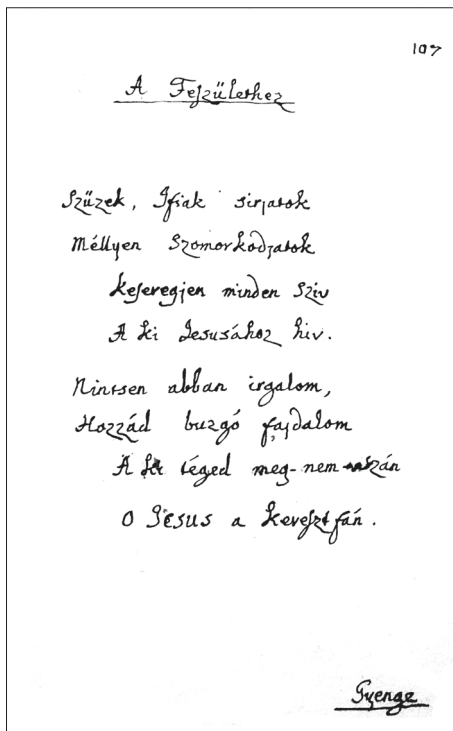 107
A Feszülethez
Szüzek, Ifiak sirjatok
Méllyen szomorkodjatok
keseregjen minden sziv
A ki Jesusához hiv.
Nintsen abban irgalom,
Hozzád buzgó fajdalom
A ki téged meg-nem szán
O Jésus a kereszt fán.
Gyenge